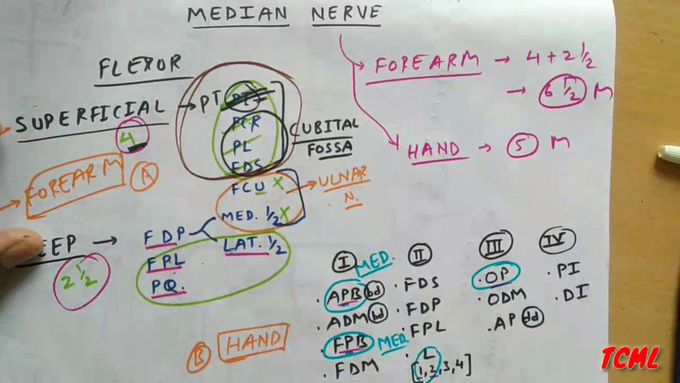 MEDIAN NERVE
FOREARM → 4 + 2 1/2
→ 6 1/2 M
HAND → 5 M
FLEXOR
SUPERFICIAL → PT
4
FCR
PL
FDS
CUBITAL
FOSSA
FCU X
MED. 1/2 X
→ ULNAR
N.
FOREARM A
EEP → FDP
LAT. 1/2
2 1/2
FPL
PQ.
B HAND
I MED.
. APB bd
. ADM bd
. FPB MED
. FDM
II
. FDS
. FDP
. FPL
. L
[1,2,3,4]
III
. OP
. ODM
. AP dd
IV
. PI
. DI
TCML